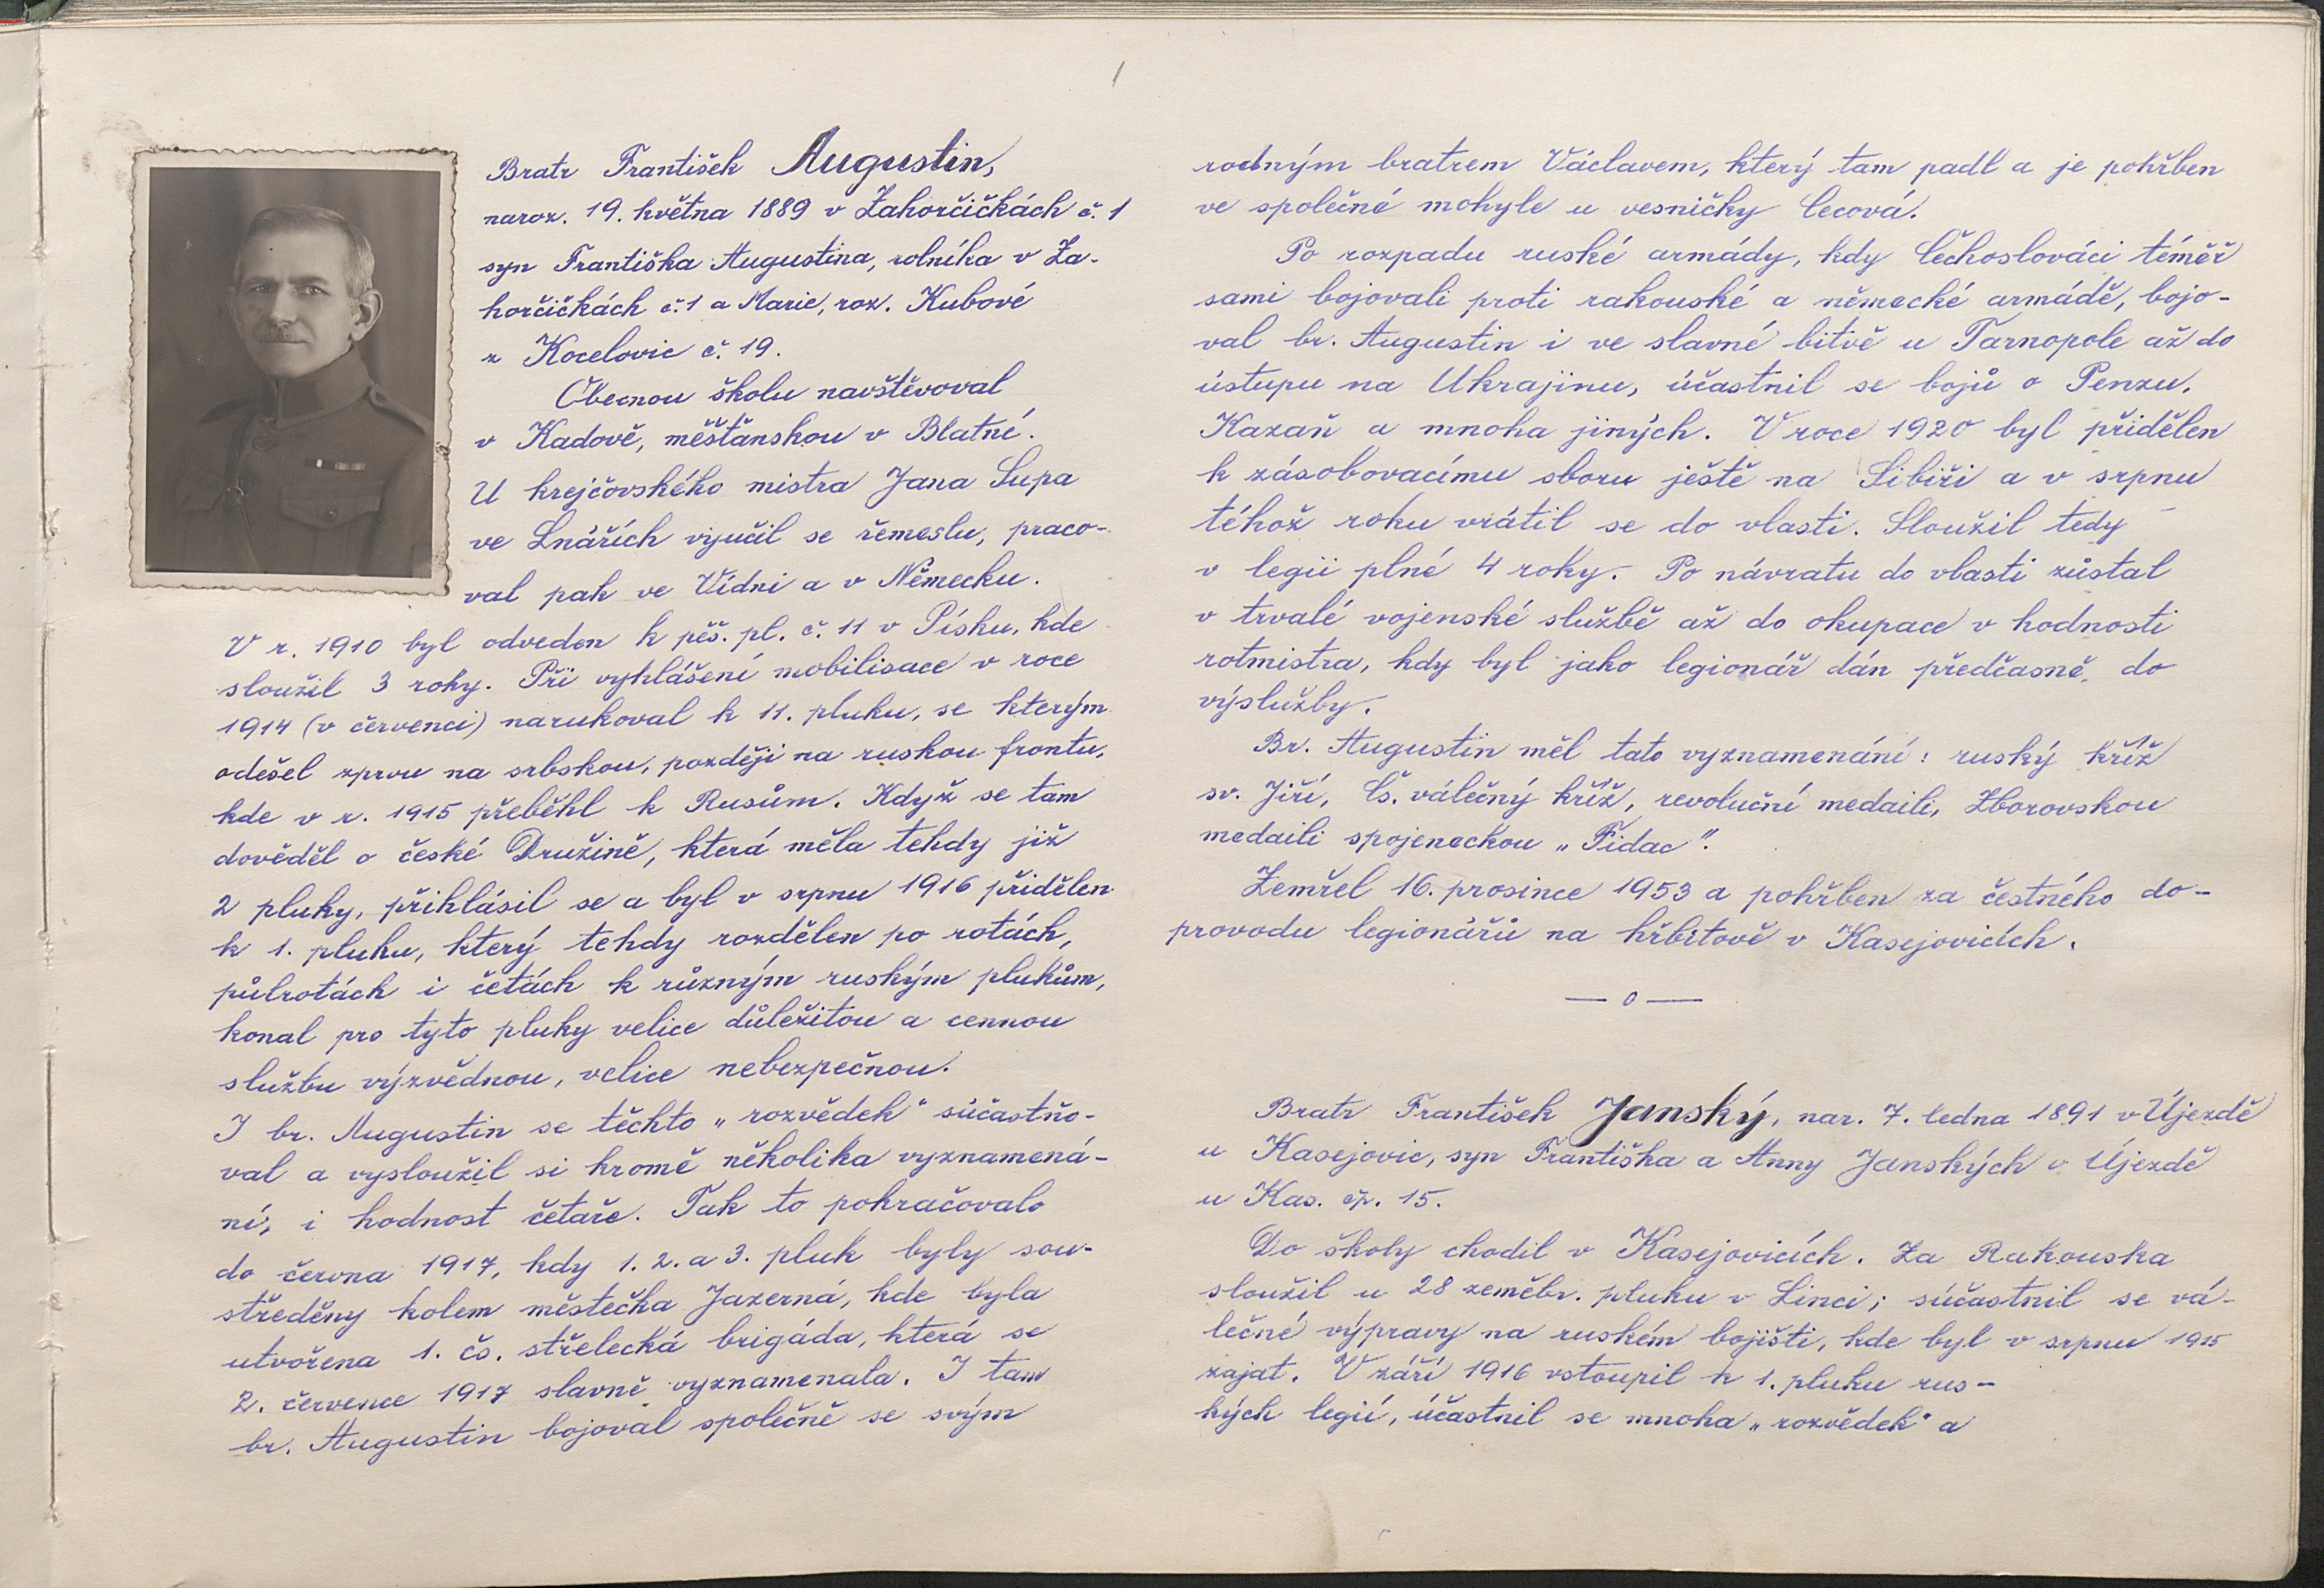 Bratr František Augustin,
naroz. 19. května 1889 v Zahorčičkách č. 1
syn Františka Augustina, rolníka v Za-
horčičkách č. 1 a Marie, roz. Kubové
z Kocelovic č. 19.
Obecnou školu navštěvoval
v Kadově, měšťanskou v Blatné.
U krejčovského mistra Jana Supa
ve Lnářích vyučil se řemeslu, praco-
val pak ve Vídni a v Německu.
V r. 1910 byl odveden k pěš. pl. č. 11 v Písku, kde
sloužil 3 roky. Při vyhlášení mobilisace v roce
1914 (v červenci) narukoval k 11. pluku, se kterým
odešel zprvu na srbskou, později na ruskou frontu,
kde v r. 1915 přeběhl k Rusům. Když se tam
dověděl o české Družině, která měla tehdy již
2 pluky, přihlásil se a byl v srpnu 1916 přidělen
k 1. pluku, který tehdy rozdělen po rotách,
půlrotách i četách k různým ruským plukům,
konal pro tyto pluky velice důležitou a cennou
službu výzvědnou, velice nebezpečnou.
I br. Augustin se těchto „rozvědek“ súčastňo-
val a vysloužil si kromě několika vyznamená-
ní, i hodnost četaře. Tak to pokračovalo
do června 1917, kdy 1. 2. a 3. pluk byly sou-
středěny kolem městečka Jazerná, kde byla
utvořena 1. čs. střelecká brigáda, která se
2. července 1917 slavně vyznamenala. I tam
br. Augustin bojoval společně se svým
rodným bratrem Václavem, který tam padl a je pohřben
ve společné mohyle u vesničky Cecová.
Po rozpadu ruské armády, kdy Čechoslováci téměř
sami bojovali proti rakouské a německé armádě, bojo-
val br. Augustin i ve slavné bitvě u Tarnopole až do
ústupu na Ukrajinu, účastnil se bojů o Penzu,
Kazaň a mnoha jiných. V roce 1920 byl přidělen
k zásobovacímu sboru ještě na Sibiři a v srpnu
téhož roku vrátil se do vlasti. Sloužil tedy
v legii plné 4 roky. Po návratu do vlasti zůstal
v trvalé vojenské službě až do okupace v hodnosti
rotmistra, kdy byl jako legionář dán předčasně do
výslužby.
Br. Augustin měl tato vyznamenání: ruský kříž
sv. Jiří, čs. válečný kříž, revoluční medaili, Zborovskou
medaili spojeneckou „Fidac“.
Zemřel 16. prosince 1953 a pohřben za čestného do-
provodu legionářů na hřbitově v Kasejovicích.
— o —
Bratr František Janský, nar. 7. ledna 1891 v Újezdě
u Kasejovic, syn Františka a Anny Janských v Újezdě
u Kas. čp. 15.
Do školy chodil v Kasejovicích. Za Rakouska
sloužil u 28 zeměbr. pluku v Linci; súčastnil se vá-
lečné výpravy na ruském bojišti, kde byl v srpnu 1915
zajat. V září 1916 vstoupil k 1. pluku rus-
kých legií, účastnil se mnoha „rozvědek“ a